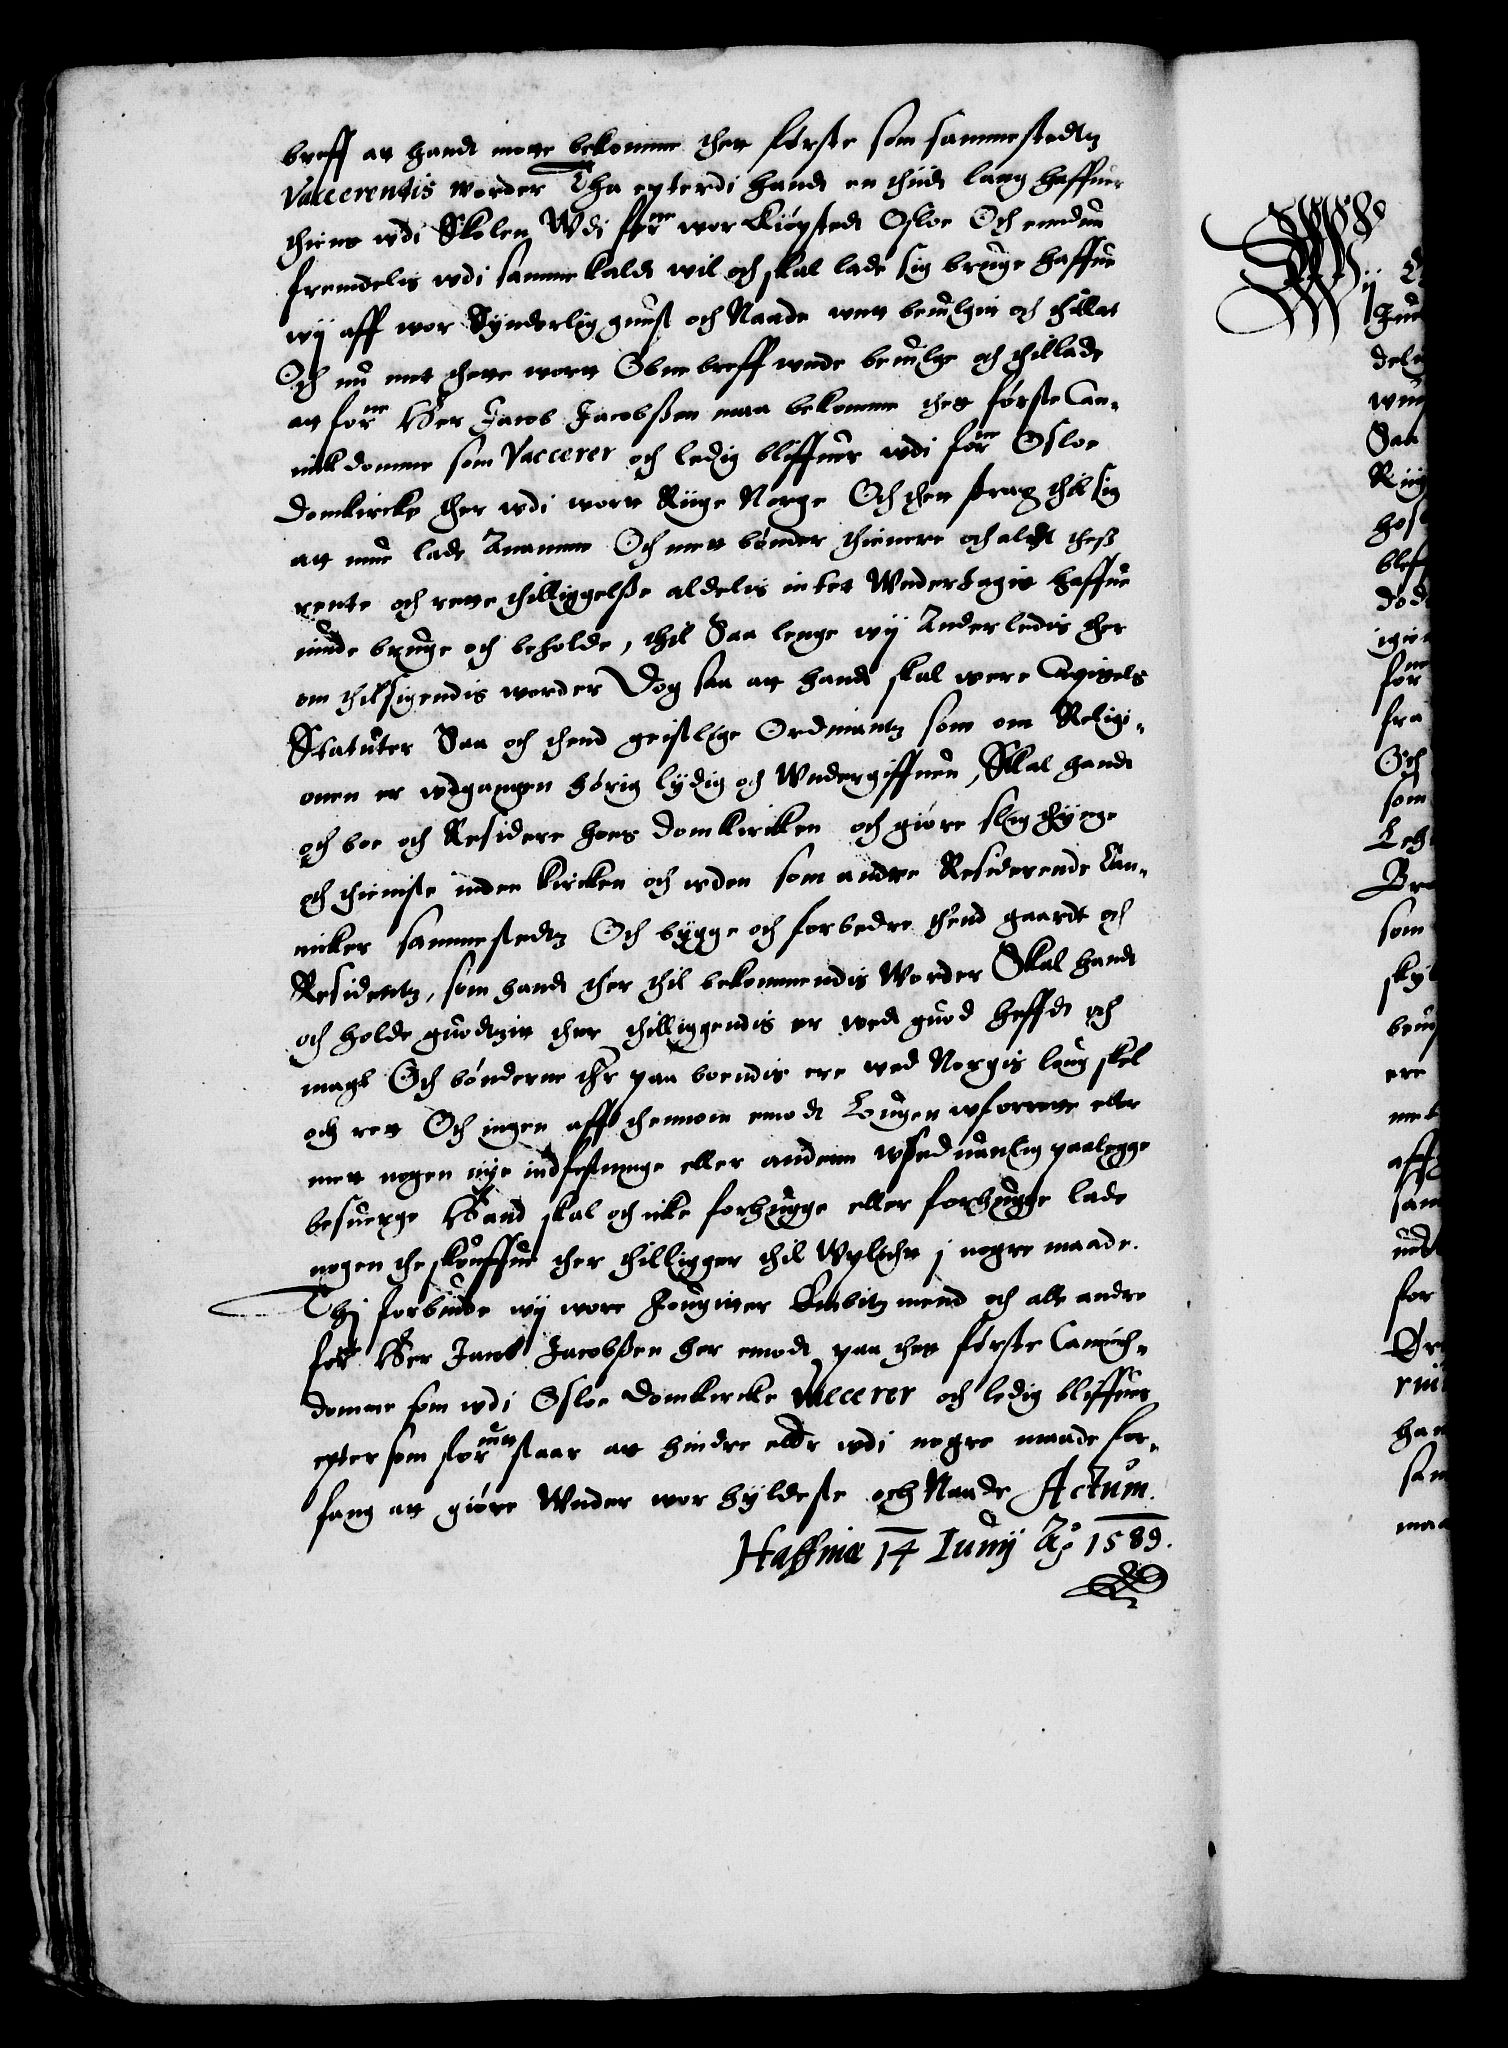 breff att handt motte bekomme thet første som sammestedtz
Vaccerendis worder Tha epterdi handt en thiidt lang haffuer
thient wdi Skolen Wdi forne wor Kiøpstedt Osloe Och enndnu
fremdelis wdi samme kaldt wil och skal lade sig bruge haffue
wij aff wor Synderlig gunst och Naade wntt beuilget och thilladt
Och nu mett thette wortt Obne breff wnde beuilge och thillade
att forne Her Jacob Jacobßen maa bekomme thet første Can-
nickdomme som Vaccerer och ledig bliffuer wdi forne Osloe
Domkircke ther wdi wortt Riige Norge Och thet strax thil sig
att mue lade Anamme Och mett bønder thienere och aldt theß
rente och rette thilliggelße aldelis intet Wndertagit haffue
niude bruge och beholde, thil Saa lenge wij Anderledis ther
om thilsigendis worder Dog saa att handt skal were Capitels
Statuter Saa och thend geistlige Ordinantz som om Religi-
onen er wdgangen hørig lydig och Wndergiffuen, Skal handt
och boe och Residere hoes Domkircken och giøre slig thynge
och thieniste inden kircken och wden som andre Residerende Can-
nicker sammestedtz Och bygge och forbedre thend gaardt och
Residentz, som handt ther thil bekommendis Worder Skal handt
och holde guodtzit ther thilliggendis er wedt guod heffdt och
magt Och bønderne ther paa boendis ere wed Norgis loug skel
och rett Och ingen aff thennom emodt Lougen wforrette eller
mett nogen nye indfestninge eller anden wseduanlig paalegge
besuerge Hand skal och icke forhugge eller forhugge lade
nogen the skouffue ther thilligger thil Wplicht j nogre maade.
Thj forbiude wij wore Fougitter Embitzmend och alle andre
forne Her Jacob Jacobßen her emodt paa thet første Cannich-
domme som wdi Osloe Domkircke Vaccerer och ledig bliffuer
epter som forneuit staar att hindre eller wdi nogre maade for-
fang att giøre Wnder wor hyldeste och Naade Actum
Haffniæ 14 Iunij Ao 1589.